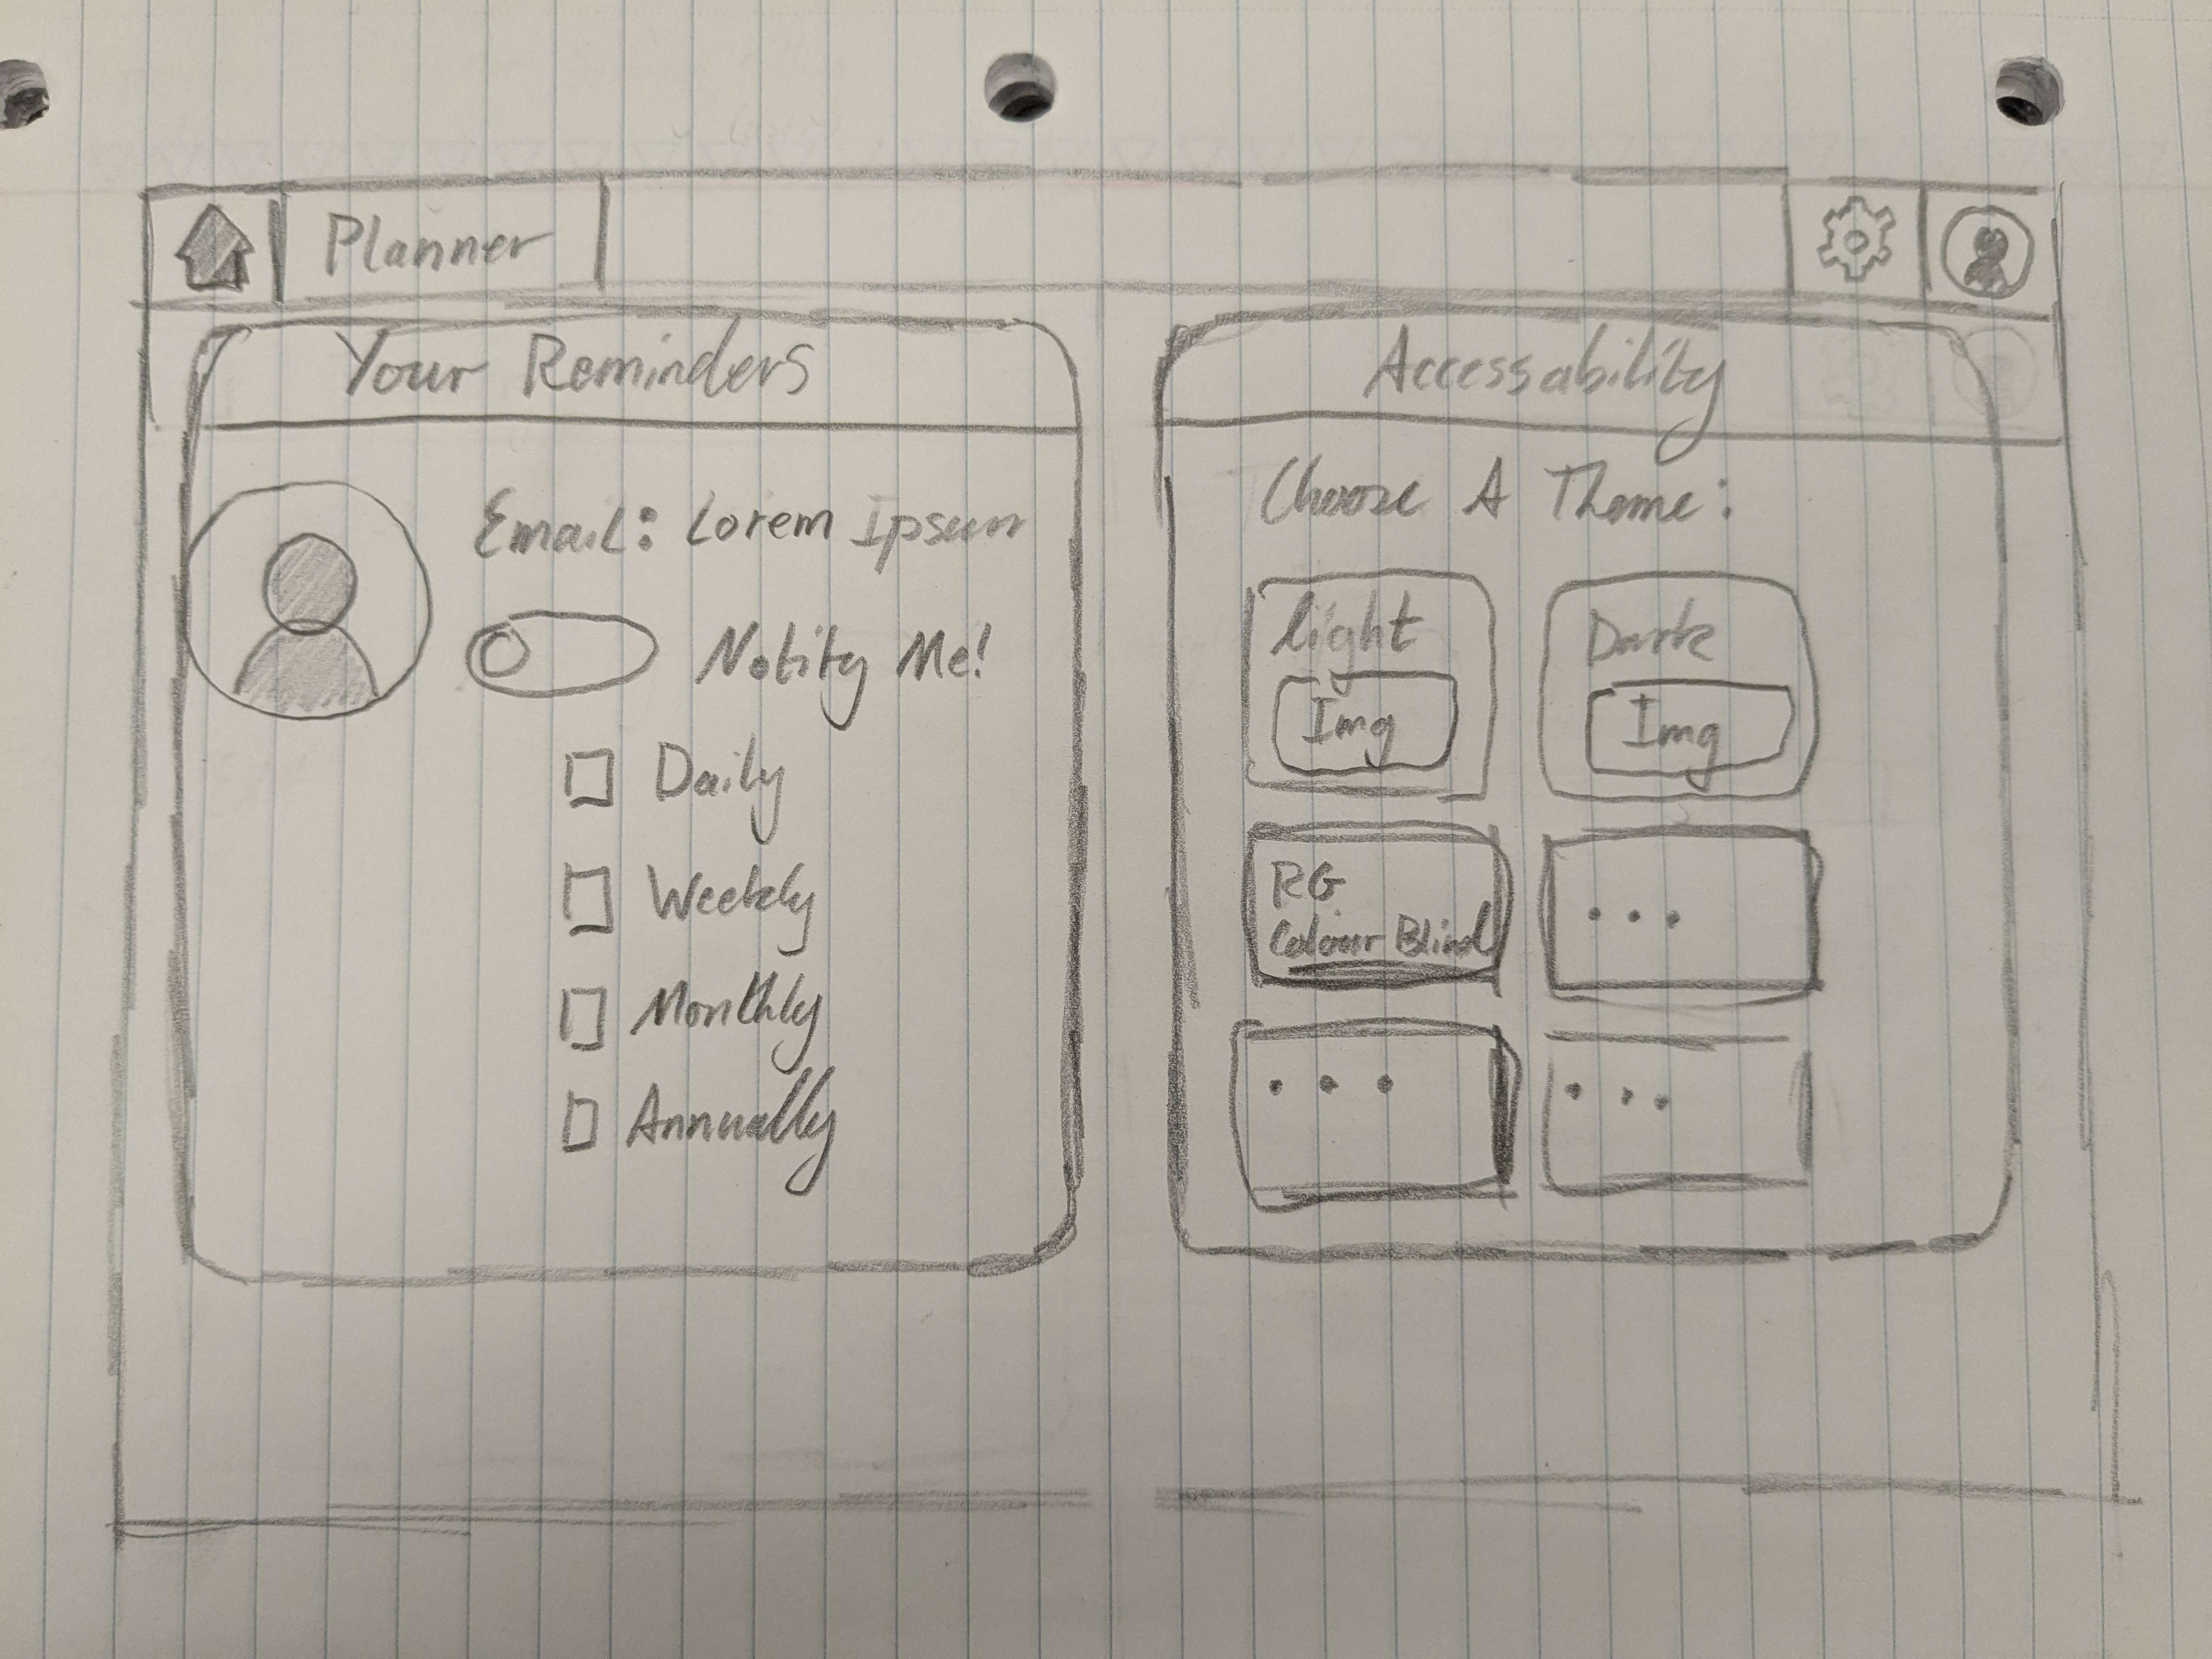 Planner
Your Reminders
Email: Lorem Ipsum
Notify Me!
Daily
Weekly
Monthly
Annually
Accessability
Choose A Theme:
light
Img
Dark
Img
RG
Colour Blind
...
...
...